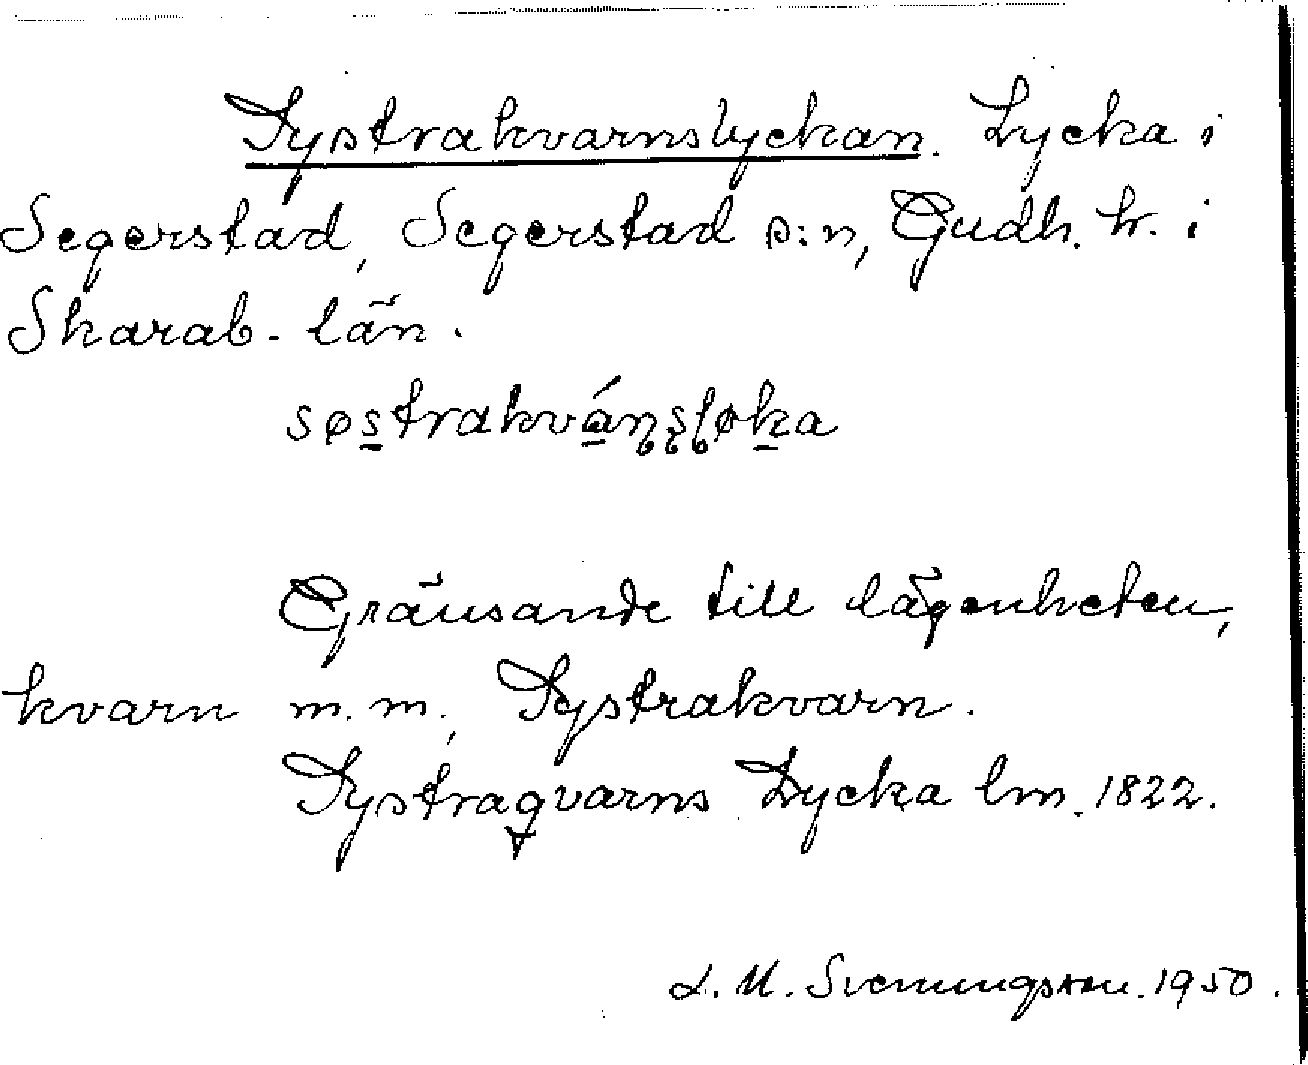 Systrakvarnslyckan. Lycka i
Segerstad, Segerstad s:n, Gudh. hr. i
Skarab. län.
søs̠trakvá̠ṇṣḷøk̠a
Gränsande till lägenheten,
kvarn m.m., Systrakvarn.
Systraqvarns Lycka lm. 1822.
L. M. Svenungsson. 1950.